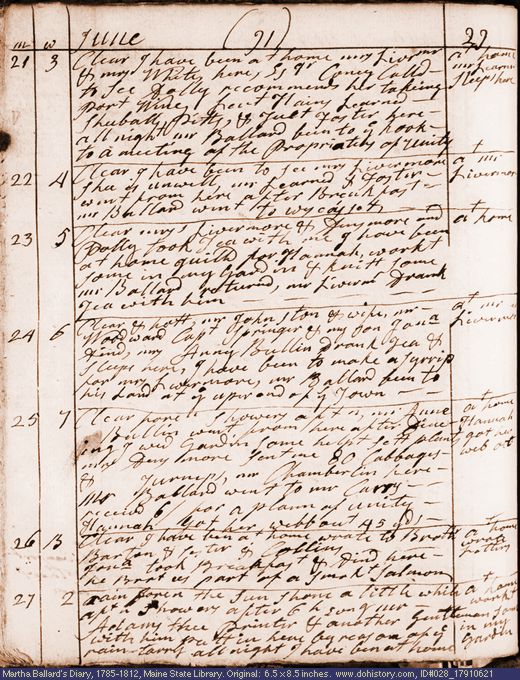 m w June (91) 29
21 3 Clear I have been at home mrs Livermr a home
& my White here, Esqr Coney Calld mr Learnd
to See Dolly recommends her takeing Sleeps here
Port Wine, Lieut Hains Learned
Shuball Pitts, & Just Foster here
all night mr Ballard been to ye hook
to a meeting of the Proprietors of Unity
22 4 Clear I have been to See mrs Livermore at mr
Shee is unwell, mr Learned & Foster Livermors
went from here after Breakfast
mr Ballard went to wycasset
23 5 Clear mrs Livermore & Densmore and at home
Dolly took Tea with me I have been
at home quilld for Hannah, workt
Some in my Gardin & knitt Some
mr Ballard returned, mr Liverm Drank
Tea with him
24 6 Clear & hott, mr Johnston & wife, mr at mr
Woodward Capt Springer & my Son Jona Livermors
Dind, mrs Anny Bullin Drank Tea &
Sleeps here, I have been to make a Syrrip
for mrs Livermore, mr Ballard been to
his Land at ye upr end of ye Town
25 7 Clear foren Showery aftn, mrs Anne at home
Bullin went from here after Dineing Hannah
I have got her
mrs Densmore Sent me 20 Cabbages web out
& Turnips, mr Chamberlin here
mr Ballard went to mr Carrys
receivd 6/ for a plann of unity
Hannah Got her webb out 45 yds
26 B Clear I have been at home wrote to Broth at home
Barton & Sister & Collins wrote
Jona took Breakfast & Dind here Letters
he Brot us part of a Smokt Salmon
27 2 rain foren the Sun Shone a little while at home
aftn Showers after 6 h Evng mr workt
Adams thee Printer & another Gentleman Some
with him Put in here by reason of ye in my
rain tarry all night I have been at home Gardin
Martha Ballard's Diary, 1785-1812, Maine State Library. Original: 6.5 x 8.5 inches. www.dohistory.com, ID#028_17910621